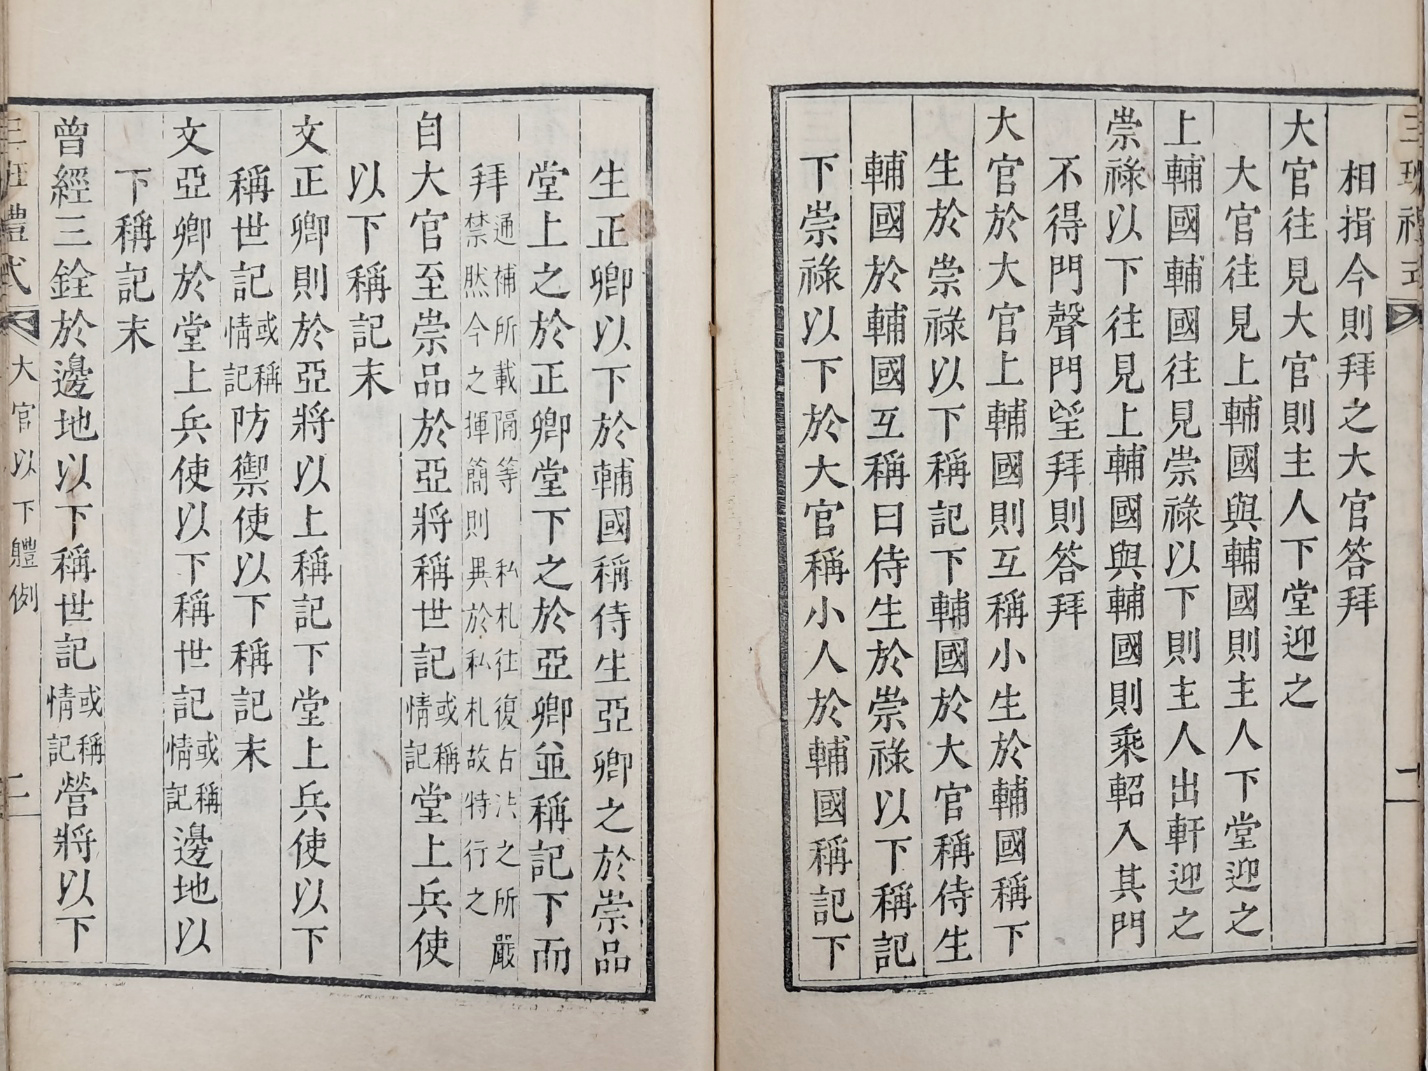 三班禮式
一
相揖今則拜之大官答拜
大官往見大官則主人下堂迎之
大官往見上輔國與輔國則主人下堂迎之
上輔國輔國往見崇祿以下則主人出軒迎之
崇祿以下往見上輔國與輔國則乘軺入其門
不得門聲門望拜則答拜
大官於大官上輔國則互稱小生於輔國稱下
生於崇祿以下稱記下輔國於大官稱侍生
輔國於輔國互稱曰侍生於崇祿以下稱記
下崇祿以下於大官稱小人於輔國稱記下
生正卿以下於輔國稱侍生亞卿之於崇品
堂上之於正卿堂下之於亞卿並稱記下而
拜通補所載隔等私札往復占法之所嚴禁然今之揮簡則異於私札故特行之
自大官至崇品於亞將稱世記或稱情記堂上兵使
以下稱記末
文正卿則於亞將以上稱記下堂上兵使以下
稱世記或稱情記防禦使以下稱記末
文亞卿於堂上兵使以下稱世記或稱情記邊地以
下稱記末
曾經三銓於邊地以下稱世記或稱情記營將以下
三班禮式
大官以下體例
二